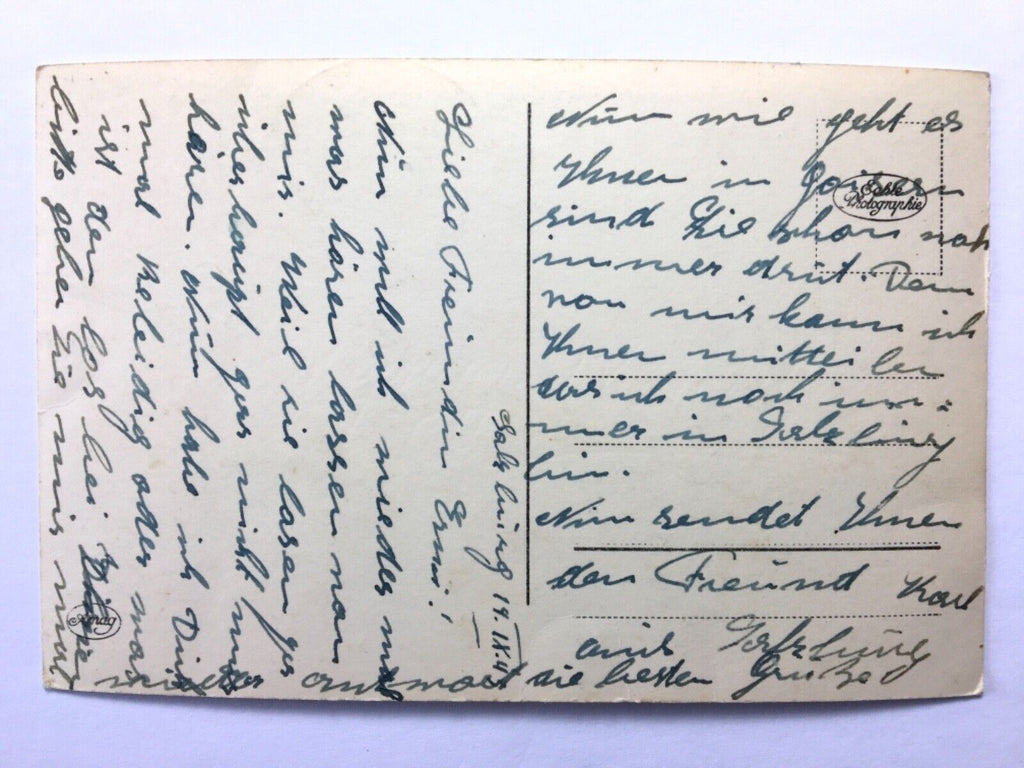 Salzburg 19. IX. 41
Liebe Freundin Erni!
Nun will ich wieder mal
was hören lassen von
mir. Weil sie lasen ja
überhaupt gar nicht mehr
hären. Nun habe ich
mal beleidig oder was
ist den los bei
bitte geben Sie mir mal
wieder antwort
Nun wie geht es
Ihnen in Goisern
sind Sie schon noch
immer drüt. Den
von mir kann ich
Ihnen mitteilen
das ich noch im=
mer in Salzburg
bin.
Nun sendet Ihnen
der Freund Karl
aus Salzburg
die besten Grüße
Echte
Photographie
Amag